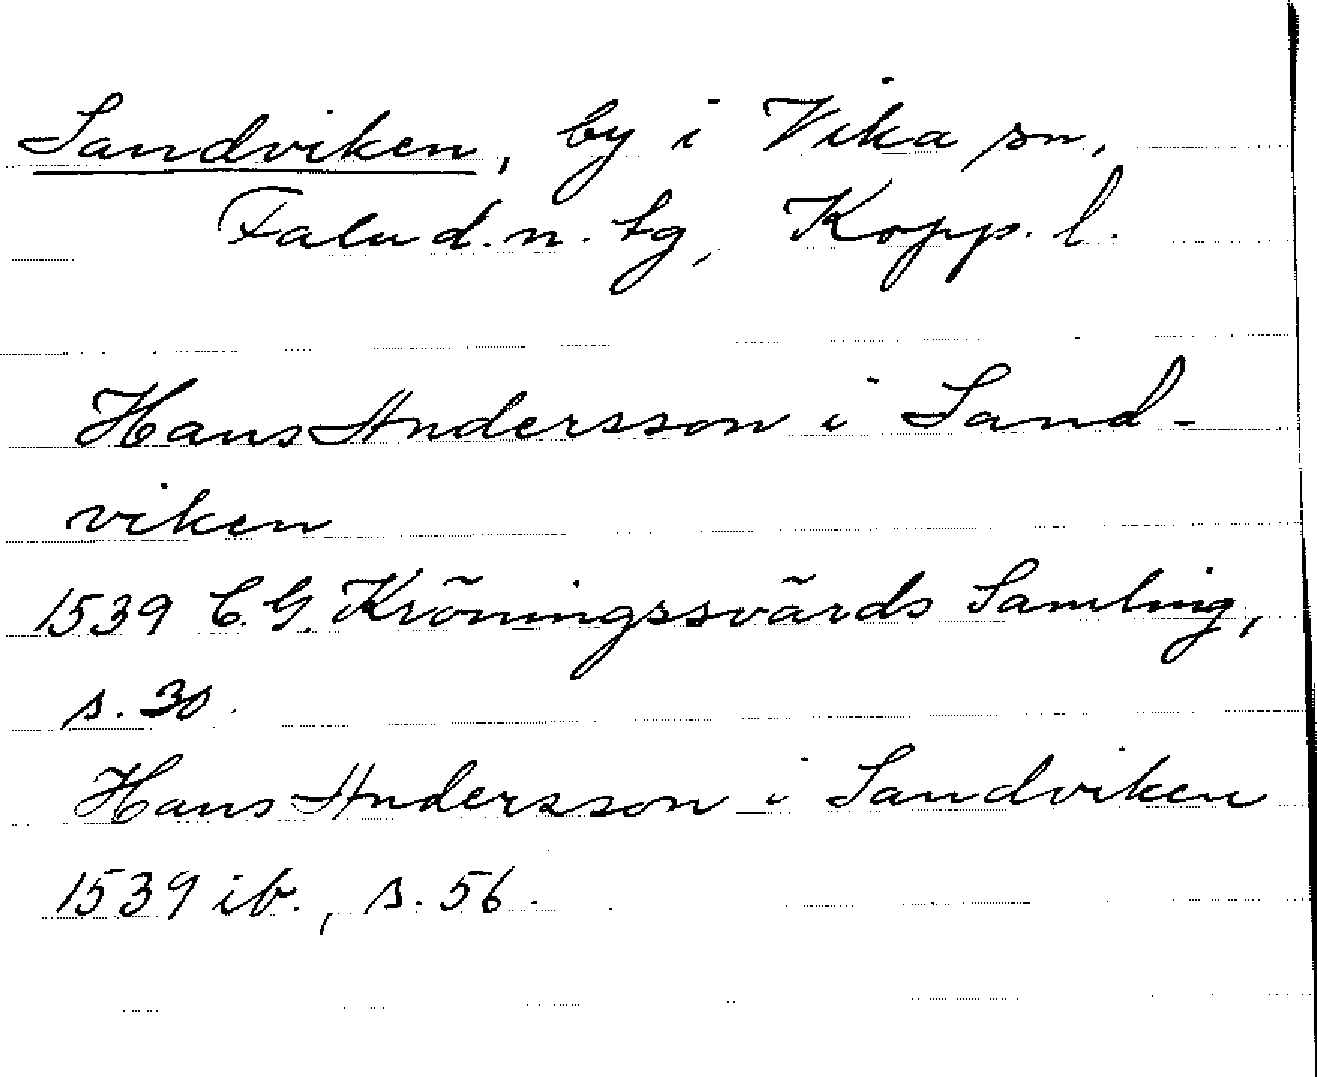 Sandviken, by i Vika sn,
Falu d. n. tg, Kopp. l.
Hans Andersson i Sand-
viken
1539 C. G. Kröningssvärds Samling,
s. 30.
Hans Andersson i Sandviken
1539 ib., s. 56.